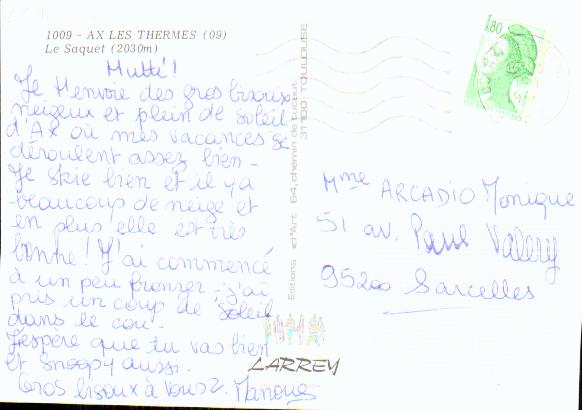 1009 - AX LES THERMES (09)
Le Saquet (2030m)
Mutti!
Je t'envoie des gros bisoux
neigeux et plein de soleil
d'Ax où mes vacances se
déroulent assez bien -
Je skie bien et il y a
beaucoup de neige et
en plus elle est très
bonne! J'ai commencé
à un peu bronzer, j'ai
pris un coup de soleil
dans le cou.
J'espère que tu vas bien
et Snoopy aussi.
Gros bisoux à vous 2. Manoue
Editions d'Art 64, chemin de
31100 TOULOUSE
LARREY
1,80
Mme ARCADIO Monique
51 av. Paul Valery
95200 Sarcelles